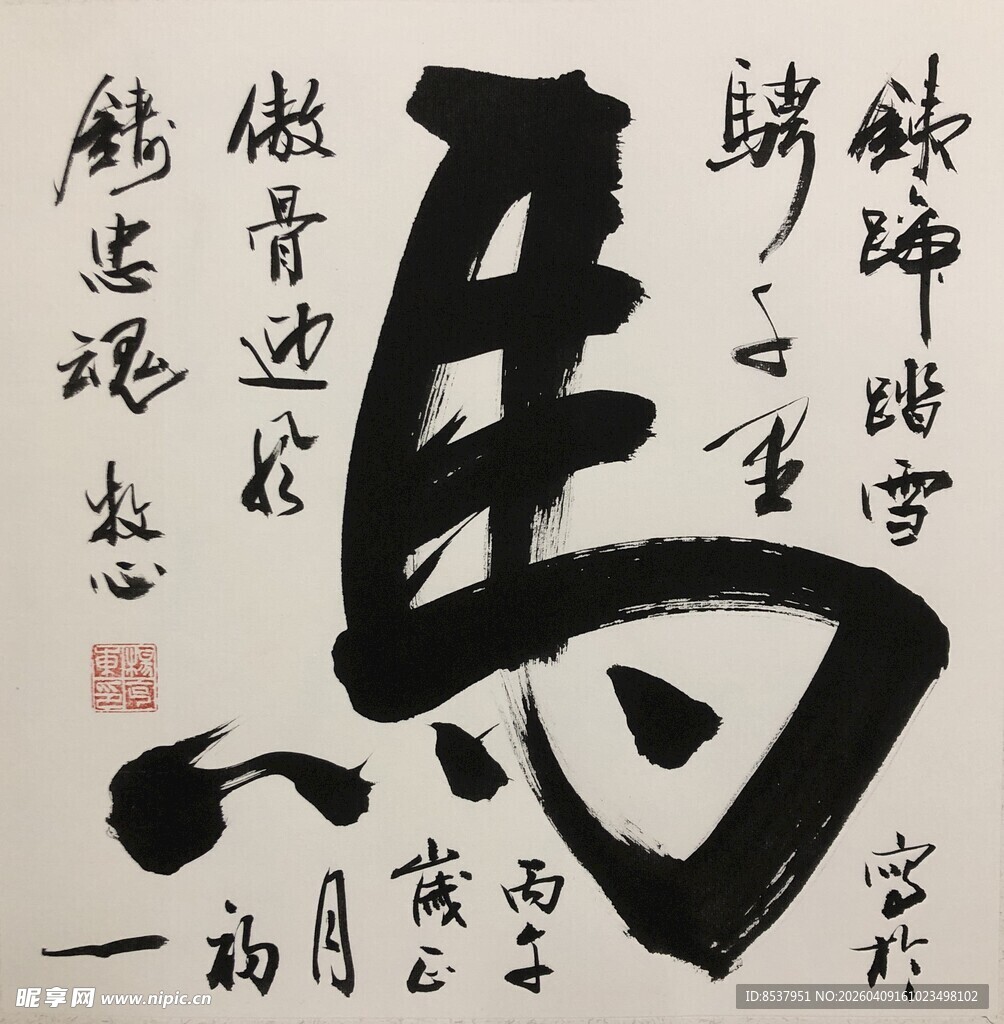 銕蹄踏雪
騁千里
馬
傲骨迎風
鑄忠魂 牧心
寫於
丙午
歲正
月
初
一
昵享网 www.nipic.cn
ID:8537951 NO:20260409161023498102